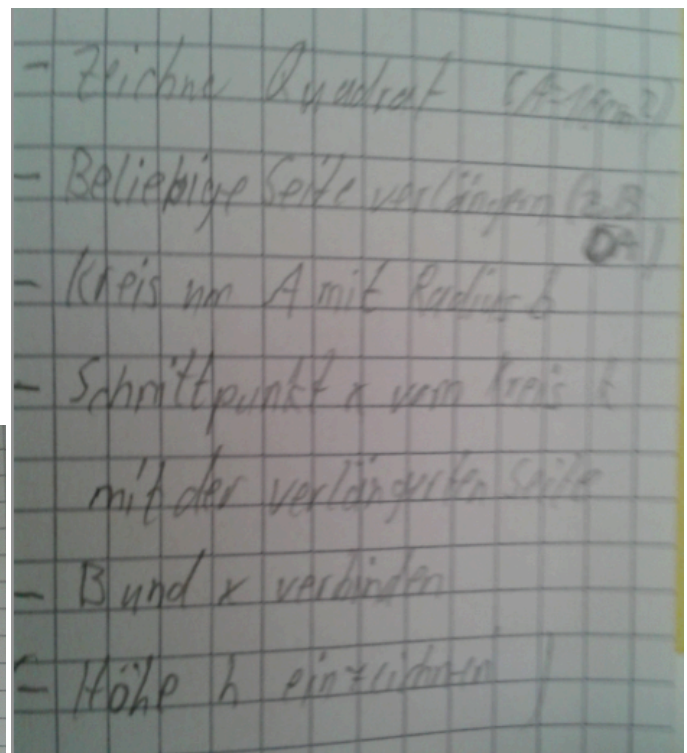 - Zeichne Quadrat (A=16cm²)
- Beliebige Seite verlängern (z.B
DA)
- Kreis um A mit Radius b
- Schnittpunkt x vom Kreis k
mit der verlängerten Seite
- B und x verbinden
- Höhe h einzeichnen